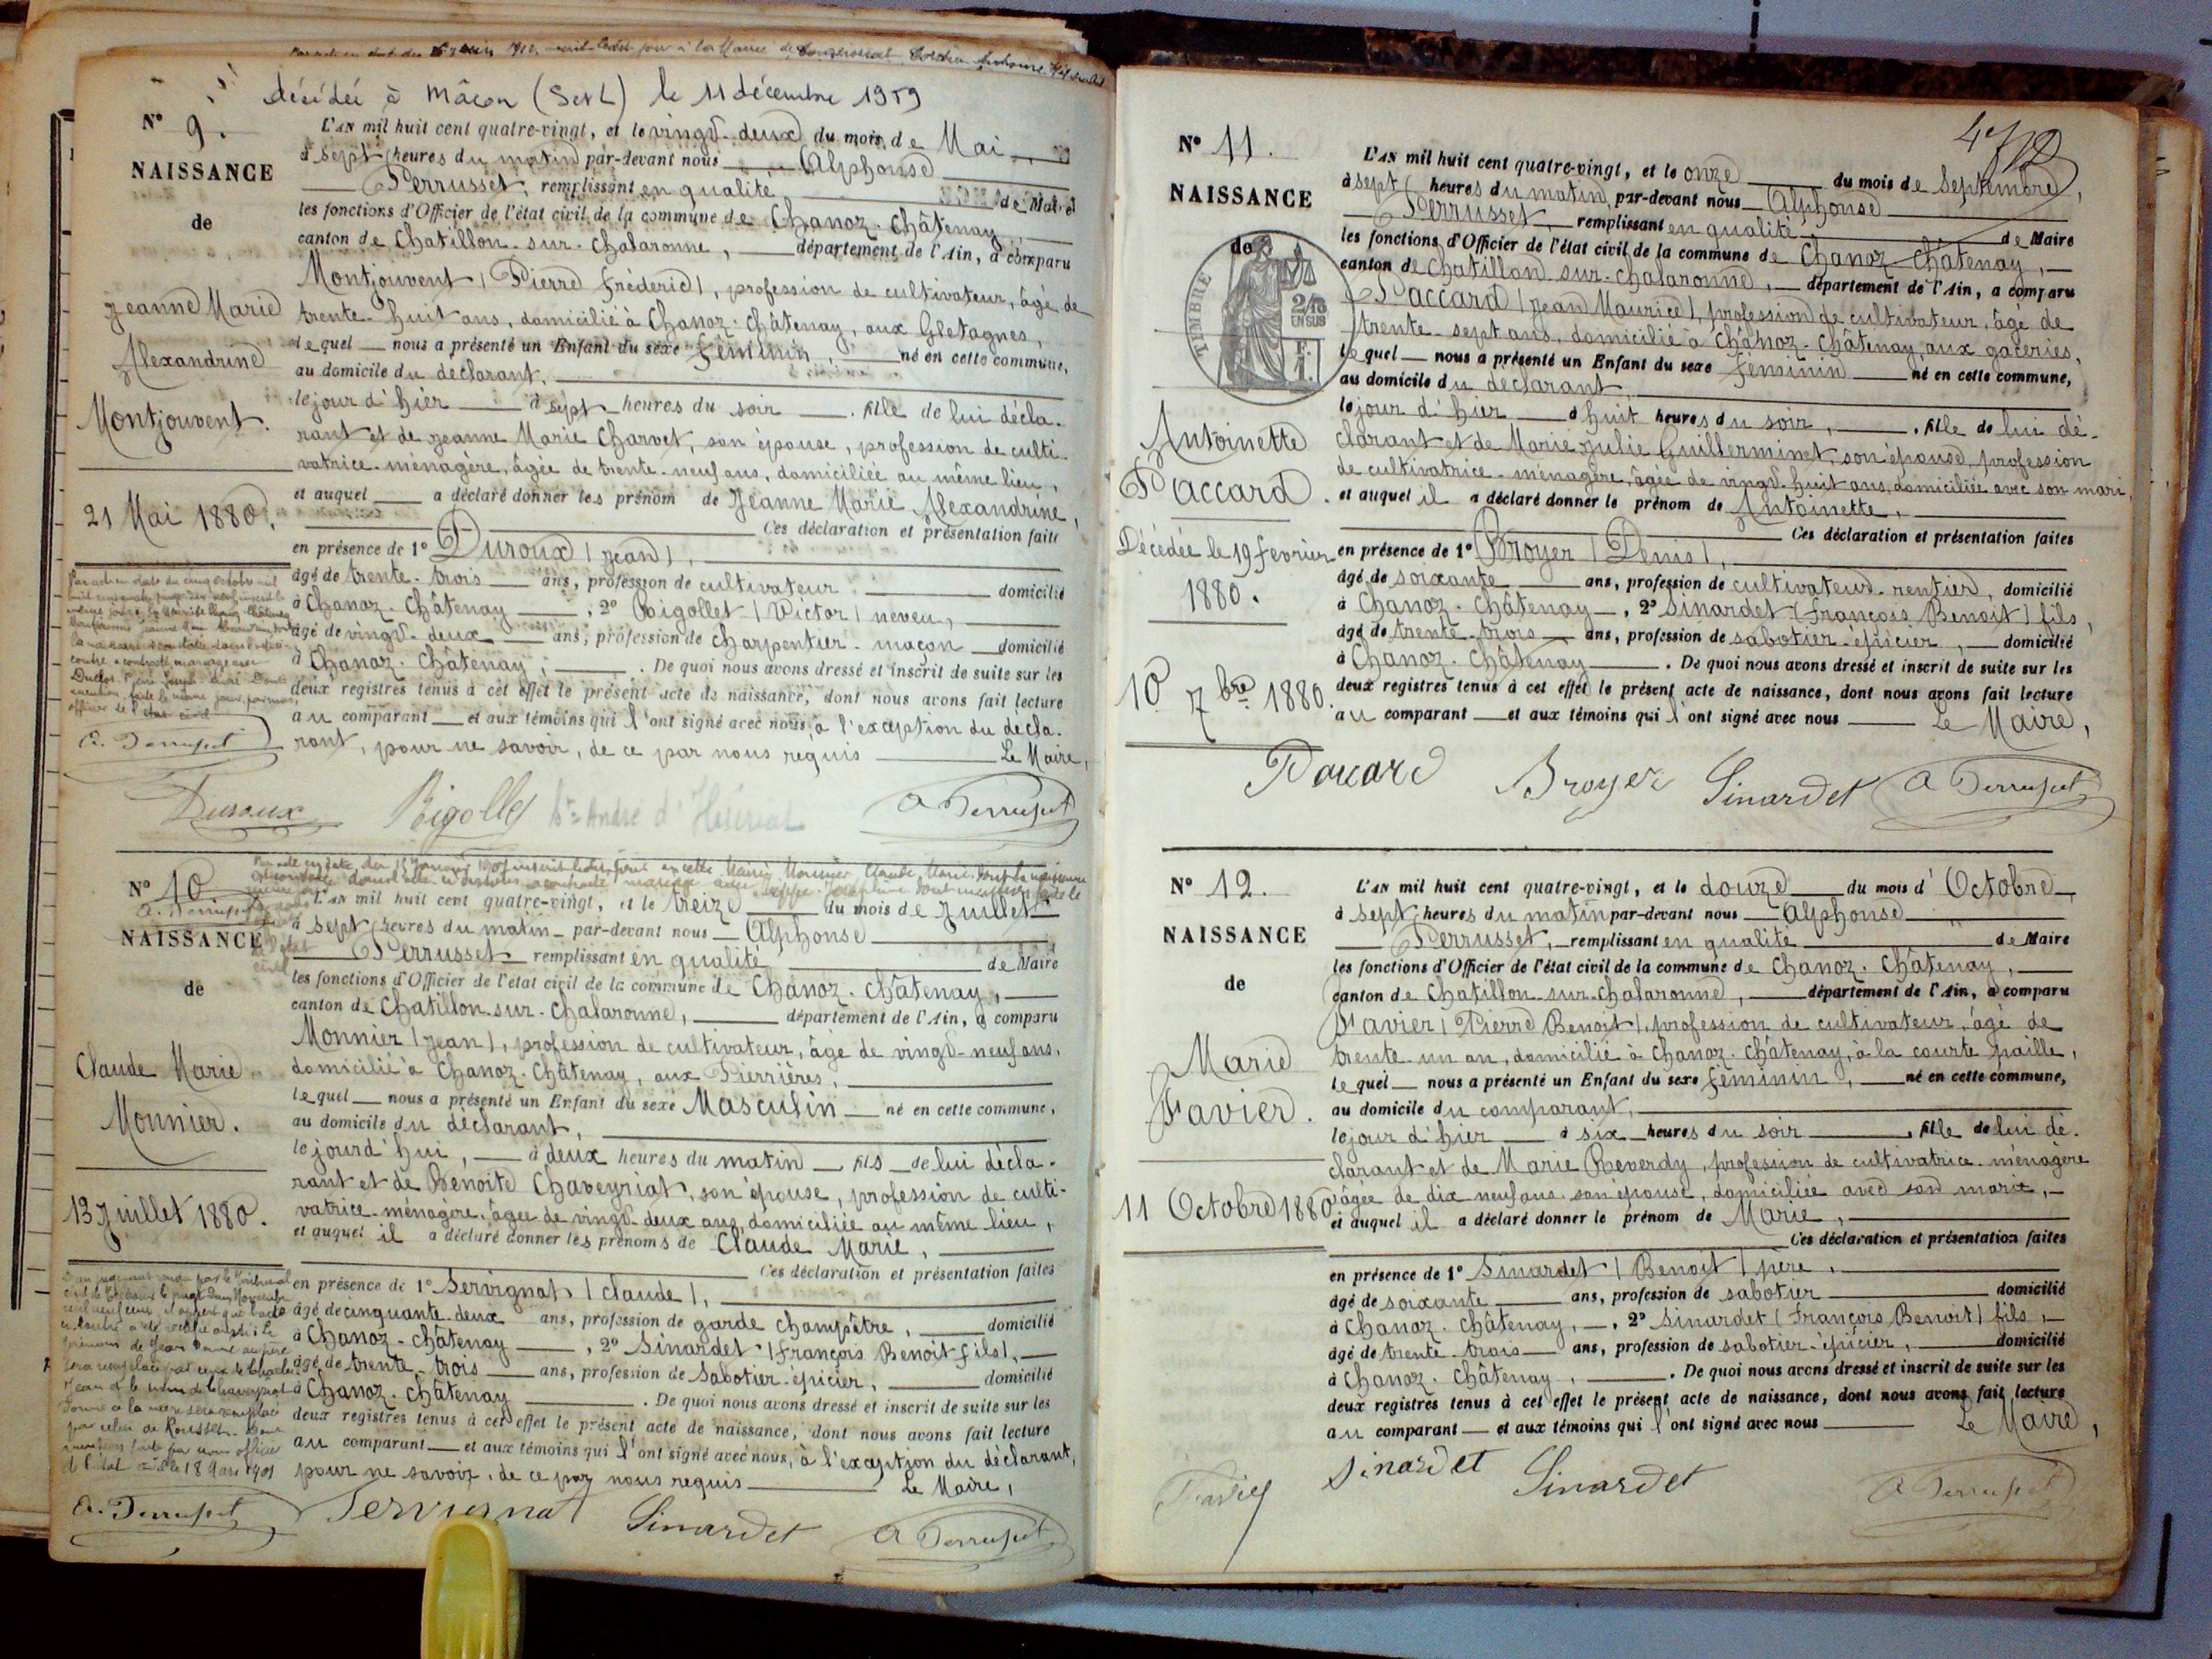 décédée à Mâcon (S et L) le 11 décembre 1959
N° 9.
NAISSANCE
de
Jeanne Marie
Alexandrine
Montjouvent.
21 Mai 1880.
L'AN mil huit cent quatre-vingt, et le vingt-deux du mois de Mai
à sept heures du matin par-devant nous Alphonse
Perrusset, remplissant en qualité de Maire
les fonctions d'Officier de l'état civil de la commune de Chanoz-Châtenay,
canton de Chatillon-sur-Chalaronne, département de l'Ain, a comparu
Montjouvent (Pierre Fréderic), profession de cultivateur, âgé de
trente-huit ans, domicilié à Chanoz-Châtenay, aux Gletagnes,
lequel nous a présenté un Enfant du sexe féminin, né en cette commune,
au domicile du déclarant,
le jour d'hier à sept heures du soir, fille de lui décla-
rant et de Jeanne Marie Charvet, son épouse, profession de culti-
vatrice-ménagère, âgée de trente-neuf ans, domiciliée au même lieu,
et auquel a déclaré donner les prénom de Jeanne Marie Alexandrine,
Ces déclaration et présentation faite
en présence de 1° Duroux (Jean),
âgé de trente-trois ans, profession de cultivateur domicilié
à Chanoz-Châtenay, 2° Rigollet (Victor) neveu,
âgé de vingt-deux ans, profession de charpentier-maçon domicilié
à Chanoz-Châtenay, . De quoi nous avons dressé et inscrit de suite sur les
deux registres tenus à cet effet le présent acte de naissance, dont nous avons fait lecture
au comparant et aux témoins qui l'ont signé avec nous, à l'exception du décla-
rant, pour ne savoir, de ce par nous requis Le Maire,
Duroux Rigollet A Perrusset
N° 10
NAISSANCE
de
Claude Marie
Monnier.
13 Juillet 1880.
L'AN mil huit cent quatre-vingt, et le treize du mois de Juillet
à sept heures du matin par-devant nous Alphonse
Perrusset remplissant en qualité de Maire
les fonctions d'Officier de l'état civil de la commune de Chanoz-Châtenay,
canton de Chatillon-sur-Chalaronne, département de l'Ain, a comparu
Monnier (Jean), profession de cultivateur, âgé de vingt-neuf ans,
domicilié à Chanoz-Châtenay, aux Pierrières,
lequel nous a présenté un Enfant du sexe Masculin né en cette commune,
au domicile du déclarant,
le jourd'hui, à deux heures du matin fils de lui décla-
rant et de Benoite Chaveyriat, son épouse, profession de culti-
vatrice-ménagère, âgée de vingt-deux ans, domiciliée au même lieu,
et auquel il a déclaré donner les prénoms de Claude Marie,
Ces déclaration et présentation faites
en présence de 1° Servignat (Claude),
âgé de cinquante-deux ans, profession de garde champêtre, domicilié
à Chanoz-Châtenay, 2° Sinardet (François Benoit fils),
âgé de trente-trois ans, profession de sabotier-épicier, domicilié
à Chanoz-Châtenay . De quoi nous avons dressé et inscrit de suite sur les
deux registres tenus à cet effet le présent acte de naissance, dont nous avons fait lecture
au comparant et aux témoins qui l'ont signé avec nous, à l'exception du déclarant,
pour ne savoir, de ce par nous requis Le Maire,
A. Perrusset Servignat Sinardet A Perrusset
N° 11.
NAISSANCE
de
TIMBRE
2/10
EN SUS
Antoinette
Paccard.
Décédée le 19 février
1880.
10 7bre 1880.
L'AN mil huit cent quatre-vingt, et le onze du mois de Septembre,
à sept heures du matin, par-devant nous Alphonse
Perrusset, remplissant en qualité de Maire
les fonctions d'Officier de l'état civil de la commune de Chanoz-Châtenay,
canton de Chatillon-sur-Chalaronne, département de l'Ain, a comparu
Paccard (Jean Maurice), profession de cultivateur, âgé de
trente-sept ans, domicilié à Chânoz-Châtenay, aux gaceries,
lequel nous a présenté un Enfant du sexe féminin né en cette commune,
au domicile du déclarant,
le jour d'hier à huit heures du soir, , fille de lui dé-
clarant et de Marie Julie Guillerminet, son épouse, profession
de cultivatrice-ménagère, âgée de vingt-huit ans, domiciliée avec son mari,
et auquel il a déclaré donner le prénom de Antoinette,
Ces déclaration et présentation faites
en présence de 1° Broyer (Denis),
âgé de soixante ans, profession de cultivateur-rentier, domicilié
à Chanoz-Châtenay, 2° Sinardet (François Benoit) fils,
âgé de trente-trois ans, profession de sabotier-épicier, domicilié
à Chanoz-Châtenay . De quoi nous avons dressé et inscrit de suite sur les
deux registres tenus à cet effet le présent acte de naissance, dont nous avons fait lecture
au comparant et aux témoins qui l'ont signé avec nous Le Maire,
Paccard Broyer Sinardet A Perrusset
N° 12.
NAISSANCE
de
Marie
Favier.
11 Octobre 1880
L'AN mil huit cent quatre-vingt, et le douze du mois d'Octobre
à sept heures du matin par-devant nous Alphonse
Perrusset, remplissant en qualité de Maire
les fonctions d'Officier de l'état civil de la commune de Chanoz-Châtenay,
canton de Chatillon-sur-Chalaronne, département de l'Ain, a comparu
Favier (Pierre Benoit), profession de cultivateur, âgé de
trente-un an, domicilié à Chanoz-Châtenay, à la courte paille,
lequel nous a présenté un Enfant du sexe féminin, né en cette commune,
au domicile du comparant,
le jour d'hier à six heures du soir , fille de lui dé-
clarant et de Marie Reverdy, profession de cultivatrice-ménagère
âgée de dix neuf ans, son épouse, domiciliée avec son mari,
et auquel il a déclaré donner le prénom de Marie,
Ces déclaration et présentation faites
en présence de 1° Sinardet (Benoit) père,
âgé de soixante ans, profession de sabotier domicilié
à Chanoz-Châtenay, 2° Sinardet (François Benoit) fils,
âgé de trente-trois ans, profession de sabotier-épicier, domicilié
à Chanoz-Châtenay, . De quoi nous avons dressé et inscrit de suite sur les
deux registres tenus à cet effet le présent acte de naissance, dont nous avons fait lecture
au comparant et aux témoins qui l'ont signé avec nous Le Maire,
Favier Sinardet Sinardet A Perrusset